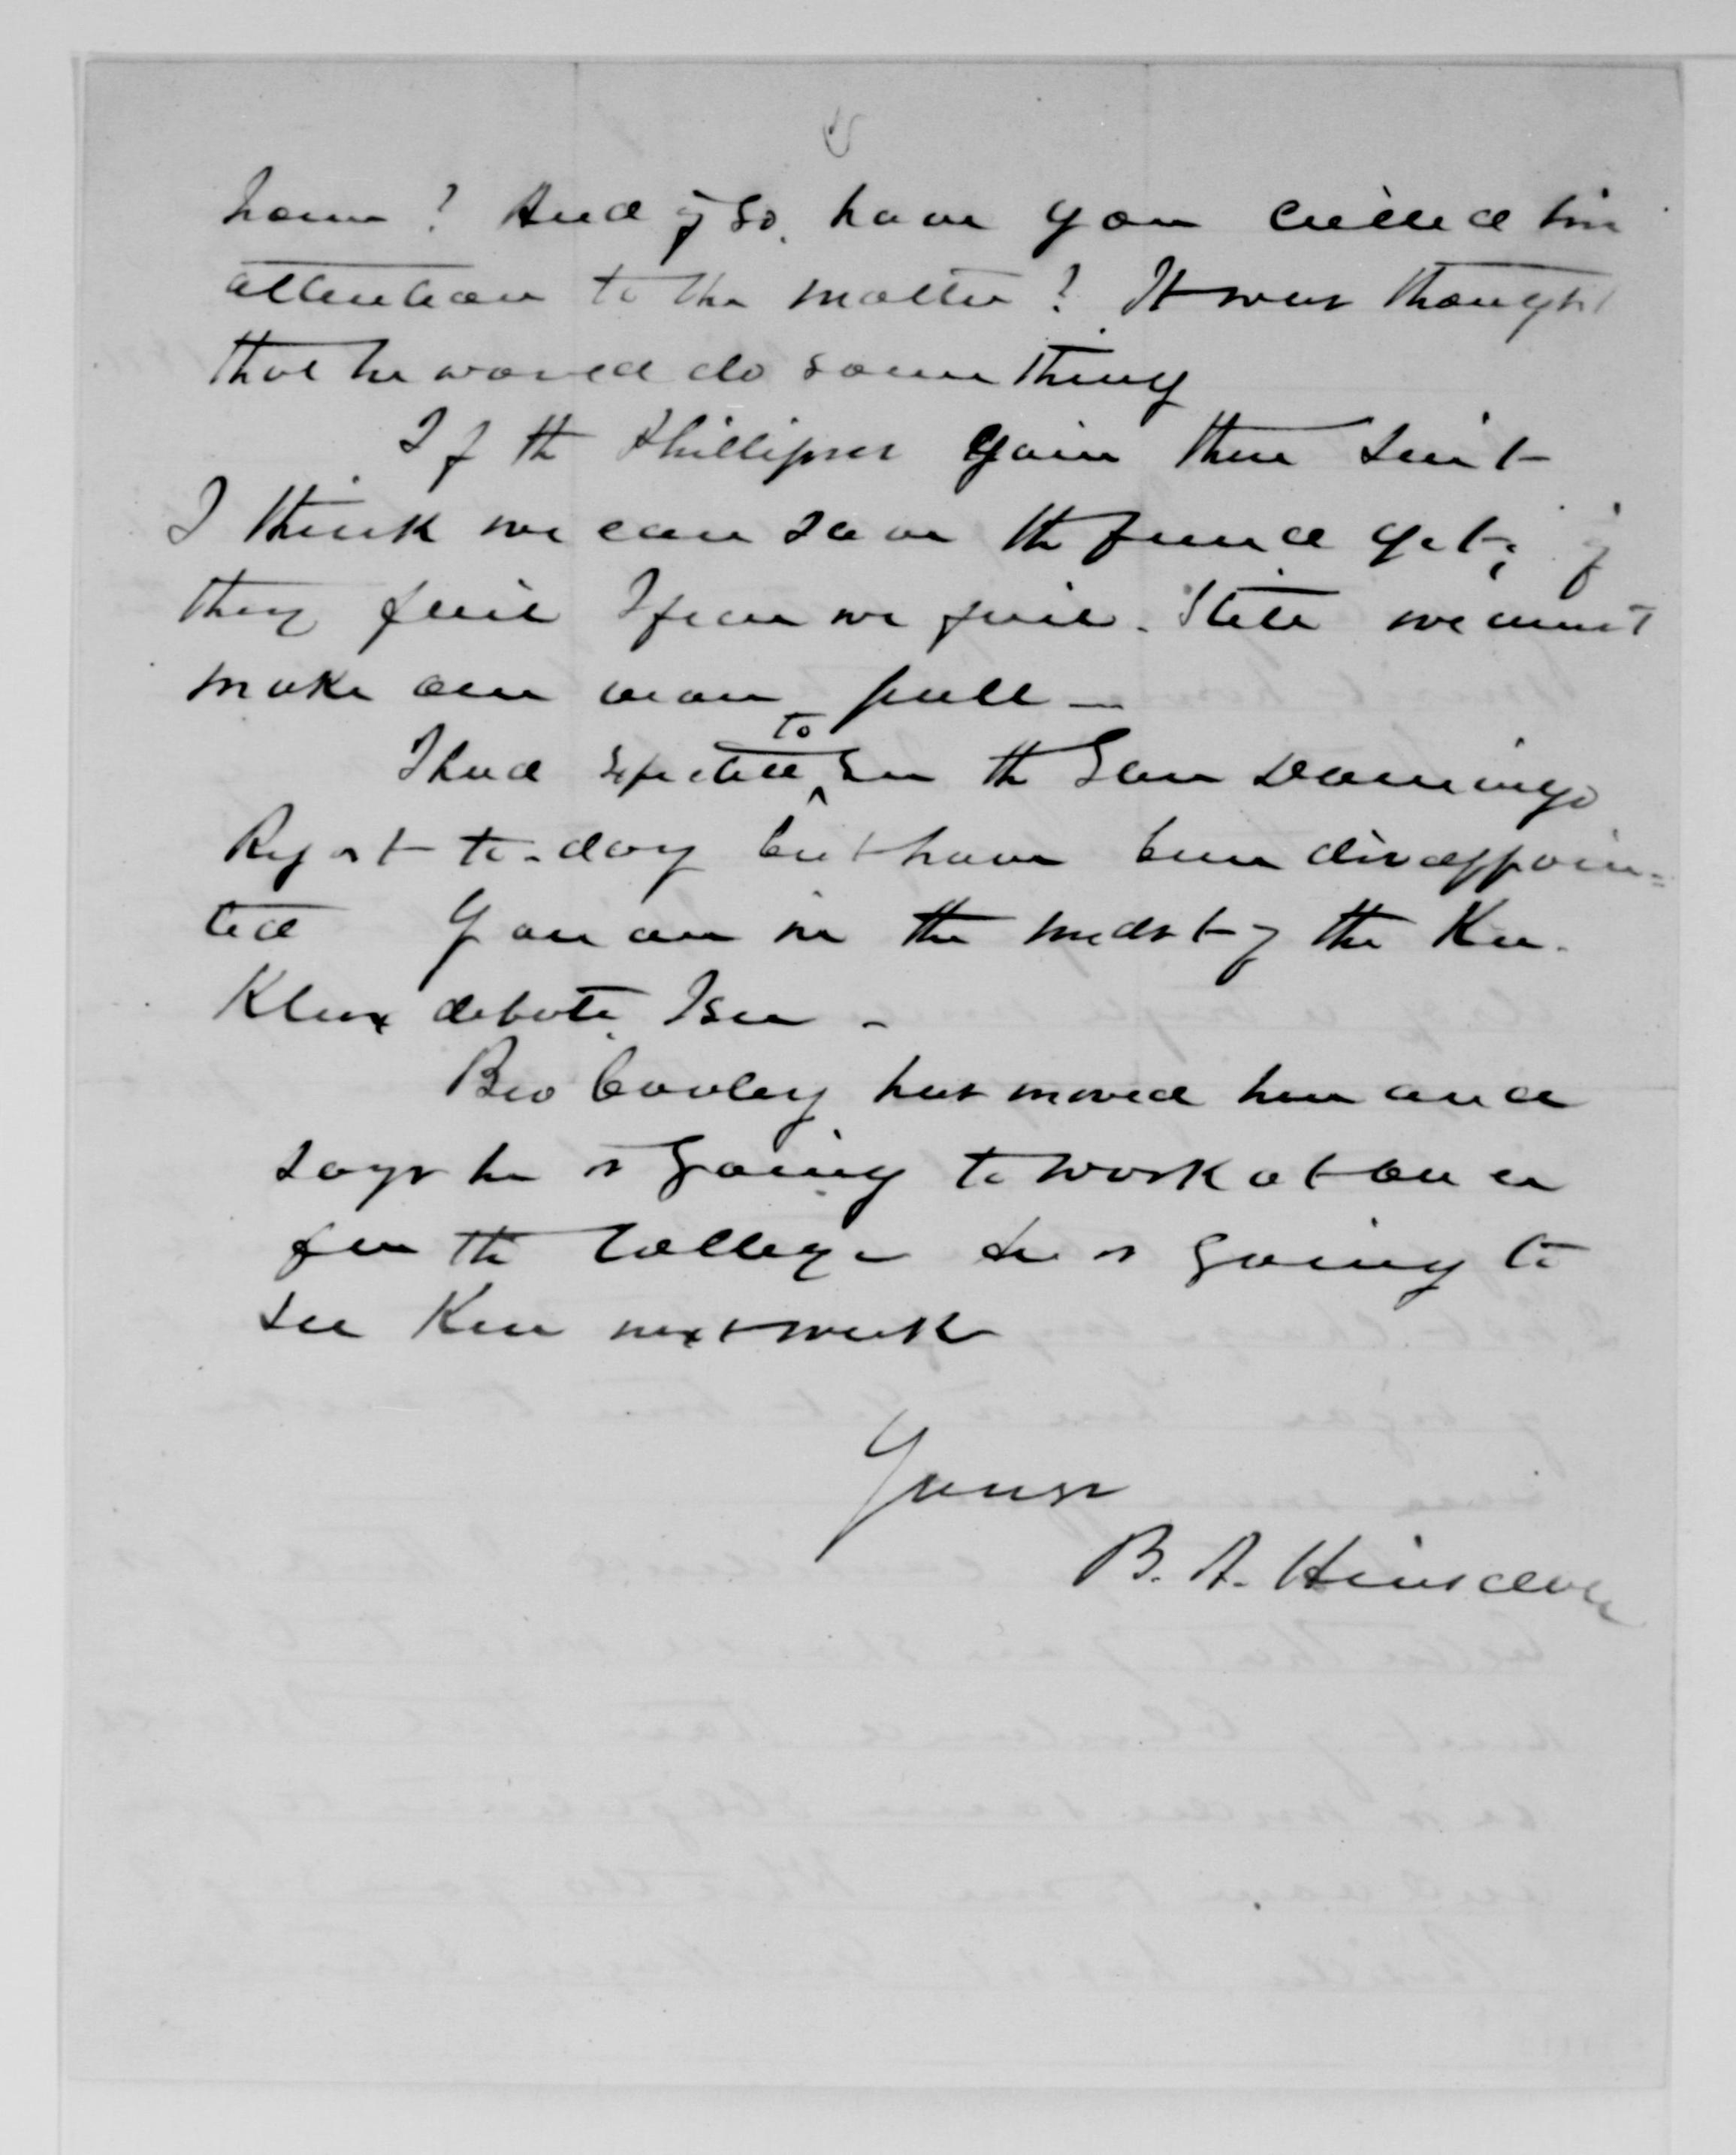 home? And if so, have you called his
attention to the matter? It was thought
that he would do something
If the Phillipses gain their suit
I think we can save the fund yet; if
they fail I fear we fail. Still we must
make our own pull —
I had expected to see the San Domingo
Report to-day but have been disappoin=
ted You are in the midst of the Ku-
Klux debate, I see -
Bro Cooley has moved here and
says he is going to work at once
for the College He is going to
see Ken next week
Yours
B. A. Hinsdale